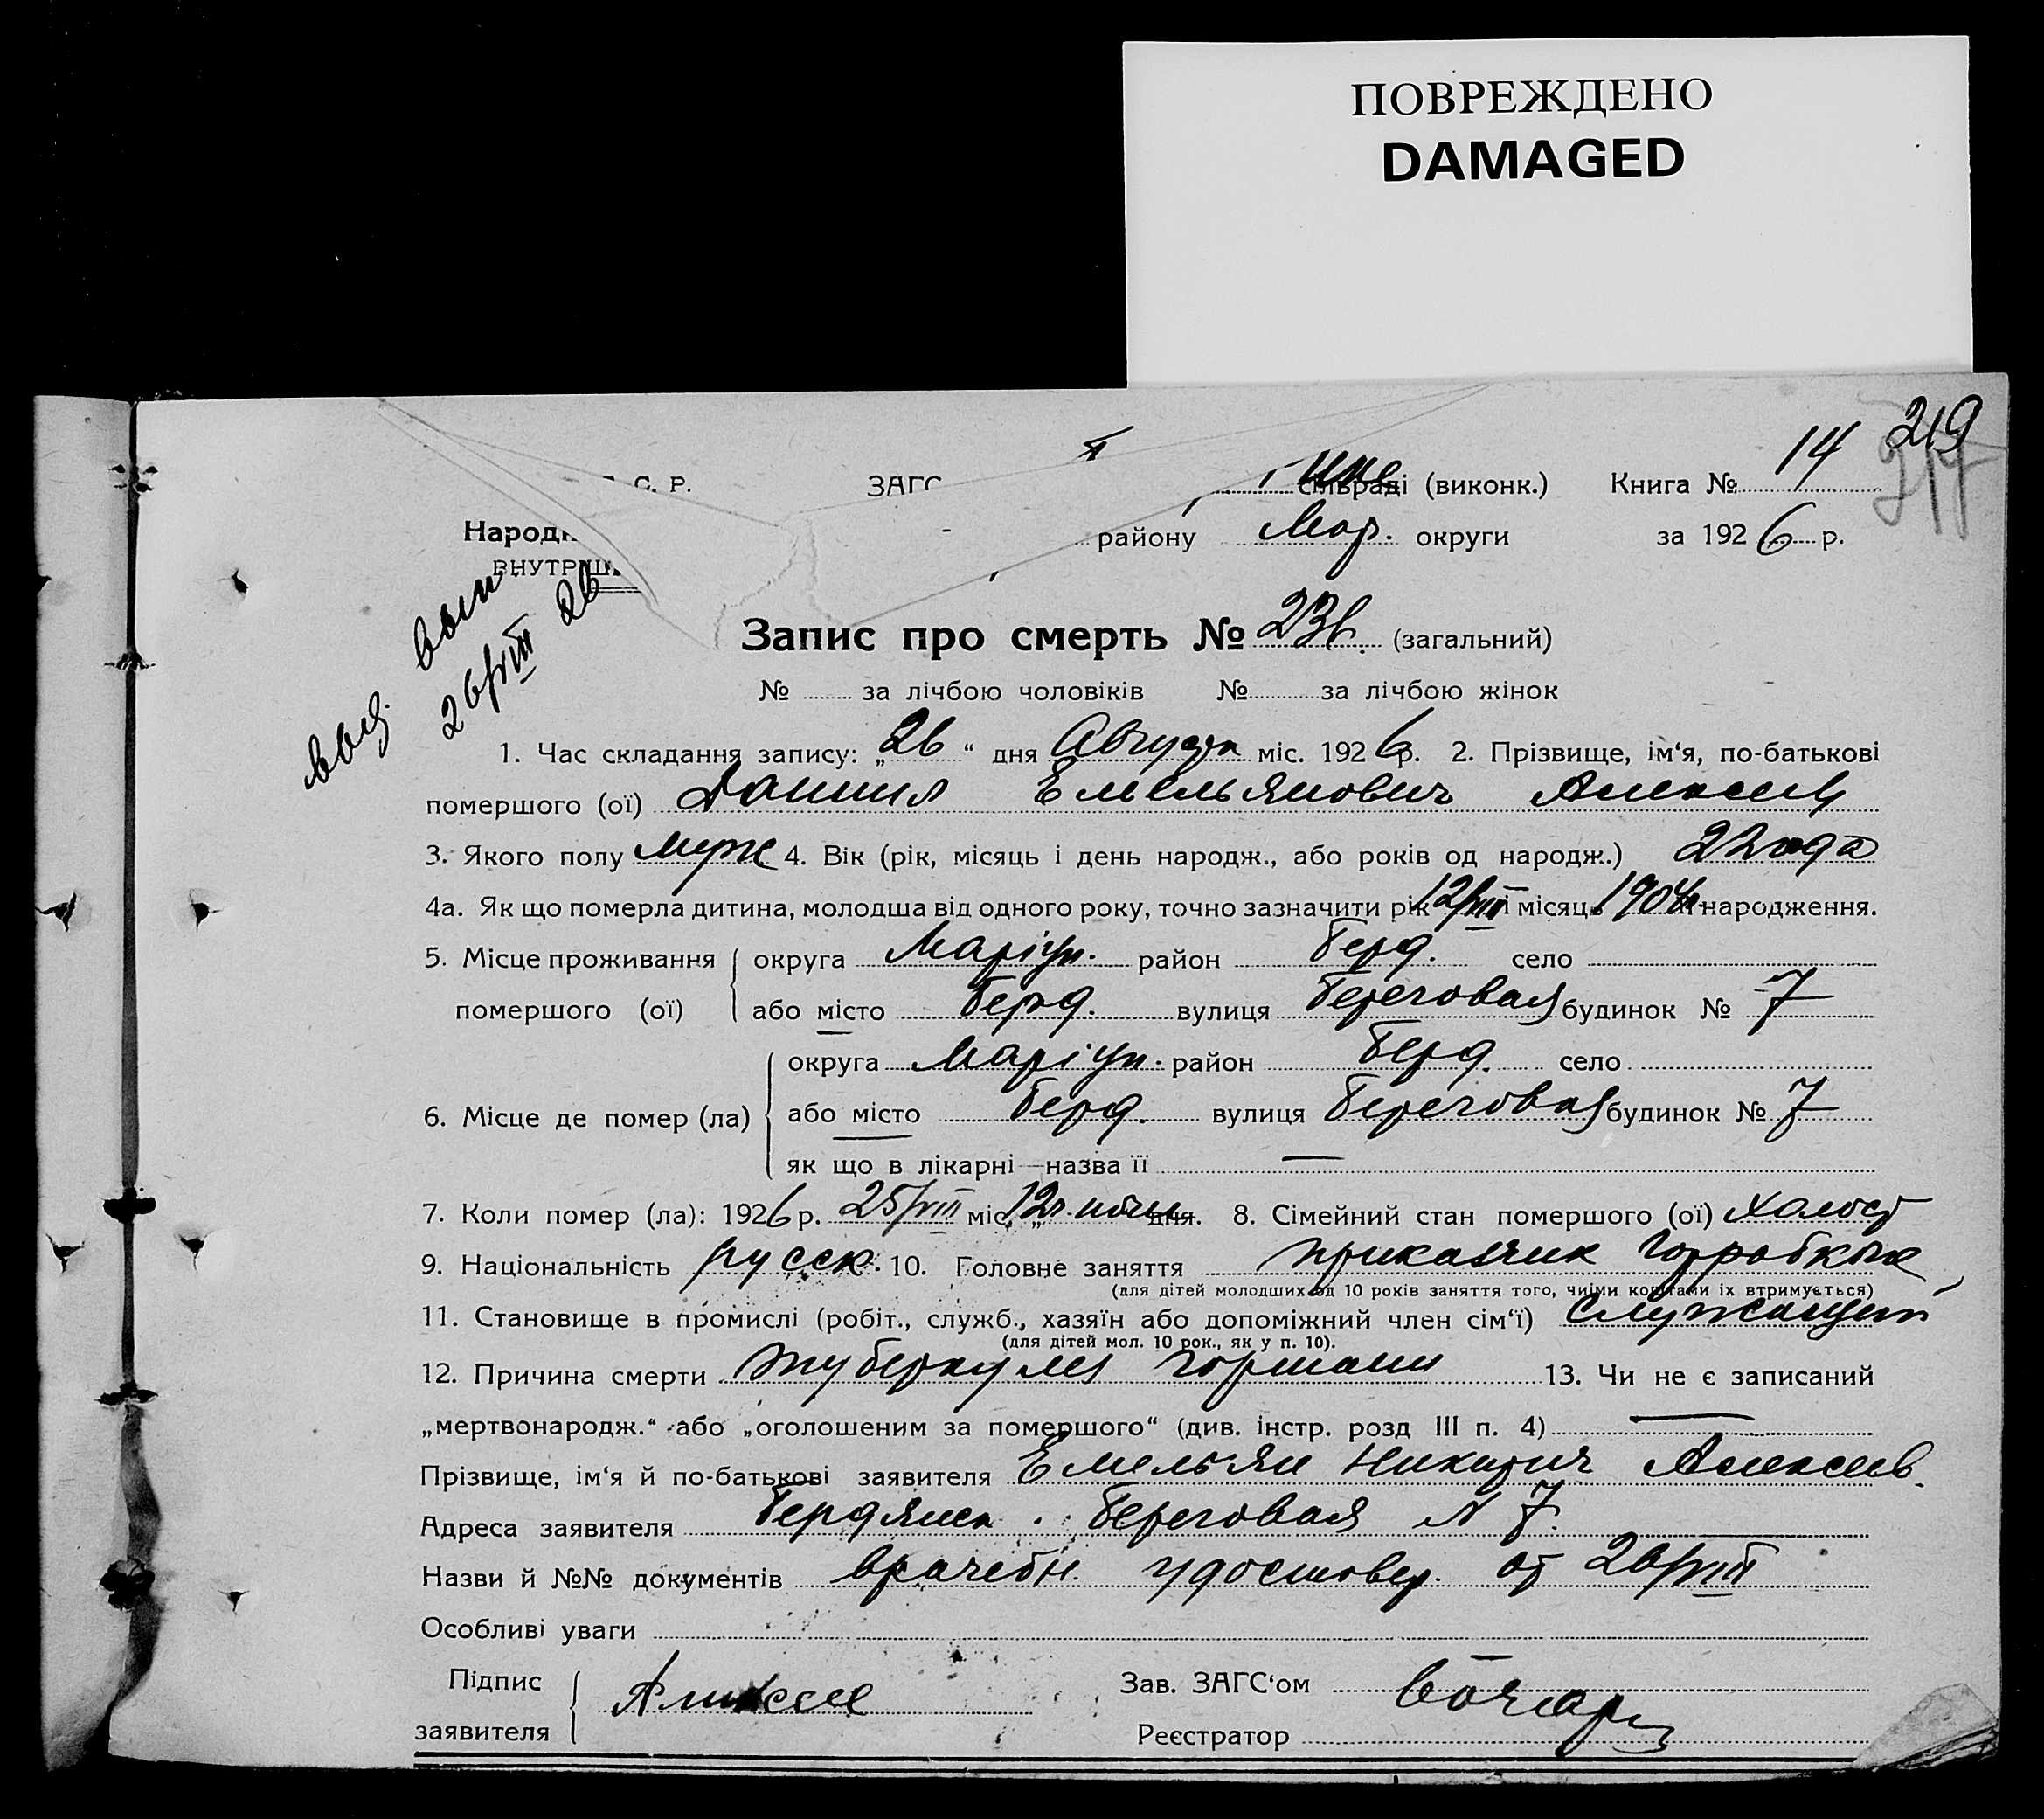 ПОВРЕЖДЕНО
DAMAGED
219
С. Р. ЗАГС сільраді (виконк.) Книга № 14
Народн району Мар. округи за 1926 р.
ВНУТРІШ
вид. вып.
26/VIII 26
Запис про смерть № 236 (загальний)
№ за лічбою чоловіків № за лічбою жінок
1. Час складання запису: „26“ дня Августа міс. 1926 р. 2. Прізвище, ім‘я, по-батькові
помершого (ої) Даниил Емельянович Алексеев
3. Якого полу муж 4. Вік (рік, місяць і день народж., або років од народж.) 22 года
4а. Як що померла дитина, молодша від одного року, точно зазначити рік 12/VIII місяць 1904 народження.
5. Місце проживання округа Маріуп. район Берд. село
помершого (ої) або місто Берд. вулиця Береговая будинок № 7
округа Маріуп. район Берд. село
6. Місце де помер (ла) або місто Берд. вулиця Береговая будинок № 7
як що в лікарні—назва її —
7. Коли помер (ла): 1926 р. 25/VIII міс. „12 ч. ночи дня. 8. Сімейний стан помершого (ої) холост
9. Національність русск. 10. Головне заняття приказчик Горрабкопа
(для дітей молодших од 10 років заняття того, чиїми коштами їх втримується)
11. Становище в промислі (робіт., служб., хазяїн або допоміжний член сім‘ї) Служащий
(для дітей мол. 10 рок., як у п. 10).
12. Причина смерти туберкулез гортани 13. Чи не є записаний
„мертвонародж.“ або „оголошеним за помершого“ (див. інстр. розд III п. 4) —
Прізвище, ім‘я й по-батькові заявителя Емельян Никитич Алексеев.
Адреса заявителя Бердянск. Береговая N 7.
Назви й №№ документів врачебн. удостовер. от 26/VIII
Особливі уваги
Підпис Алексеев Зав. ЗАГС‘ом
заявителя Реєстратор